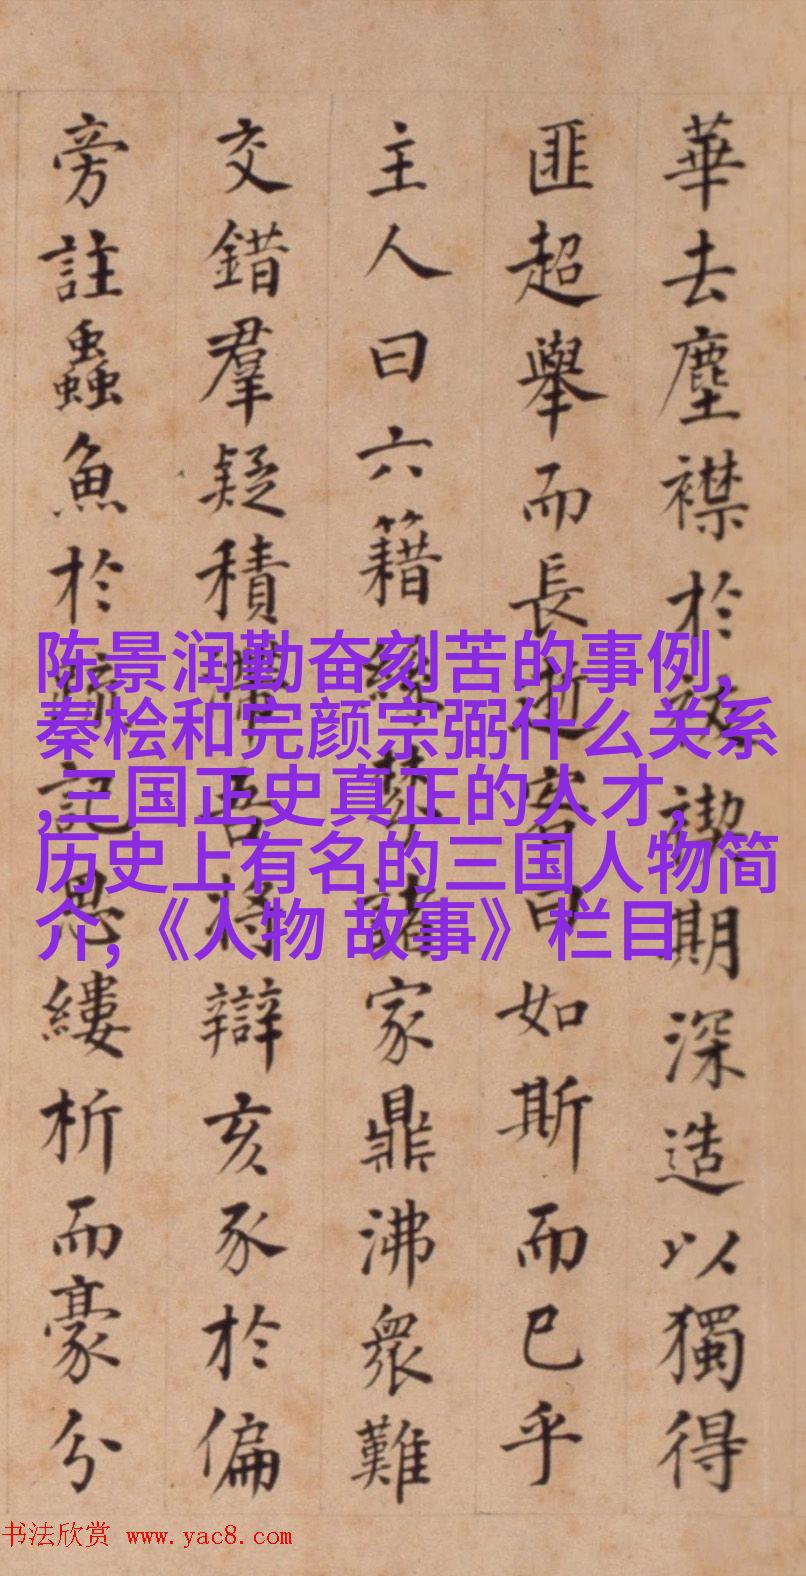 華去塵襟於期深造以獨得
匪超舉而長逝客曰如斯而已乎
主人曰六籍經藝諸家鼎沸衆難
交錯羣疑積吾將辯亥豕於偏
旁註蟲魚於記縷析而豪分
陈景润勤奋刻苦的事例,
秦桧和完颜宗弼什么关系
,三国正史真正的人才,
历史上有名的三国人物简
介,《人物 故事》栏目
书法欣赏 www.yac8.com